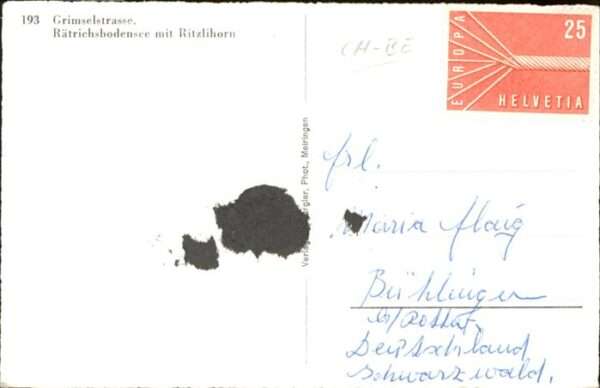 193 Grimselstrasse,
Rätrichsbodensee mit Ritzlihorn
CH-BE
EUROPA
25
HELVETIA
Phot., Meiringen
Frl.
Maria Flaig
Bühlingen
b/Rottw.
Deutschland
Schwarzwald.